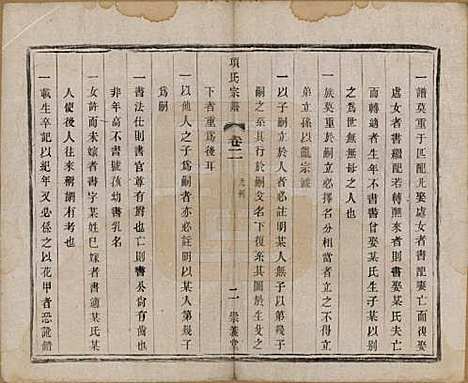 一譜莫重于匹配凡娶處女者書配娶亡而後娶
處女者書繼配若轉醮來者書娶某氏夫亡
而轉適者生年不書曾娶某氏生子某以別
之爲世無無母之人也
一族莫重立嗣立必擇名分相當者立之不得立
弟立孫以亂宗誠
一以子嗣立人者必註明某人無子以某幾子
嗣之於某其行於嗣父名下復系其圖於生父之
項氏宗譜
卷二
凡例
二
崇義堂
下者重爲後耳
一以他人之子爲嗣者亦必註明以某人第幾子
爲嗣
一書法仕則書官尊有爵也亡則書公尚有齒也
非年高不書號孩幼書乳名
一女許而未嫁者書字某姓已嫁者書適某氏某
人使後人來稱謂有考也
一載生卒記以紀年又必係之以花甲者恐訛錯